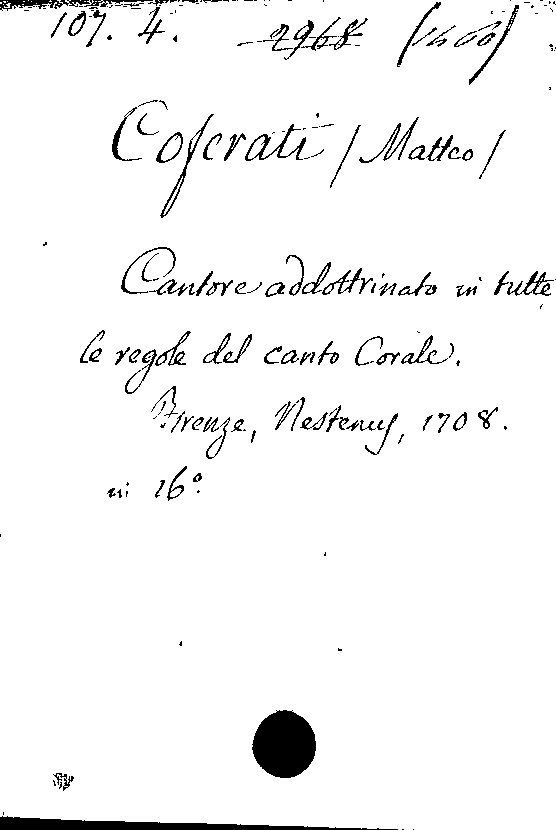 107. 4. 2968 (1466)
Coferati / Matteo /
Cantore addottrinato in tutte
le regole del canto Corale.
Firenze, Nestenus, 1708.
in 16º.